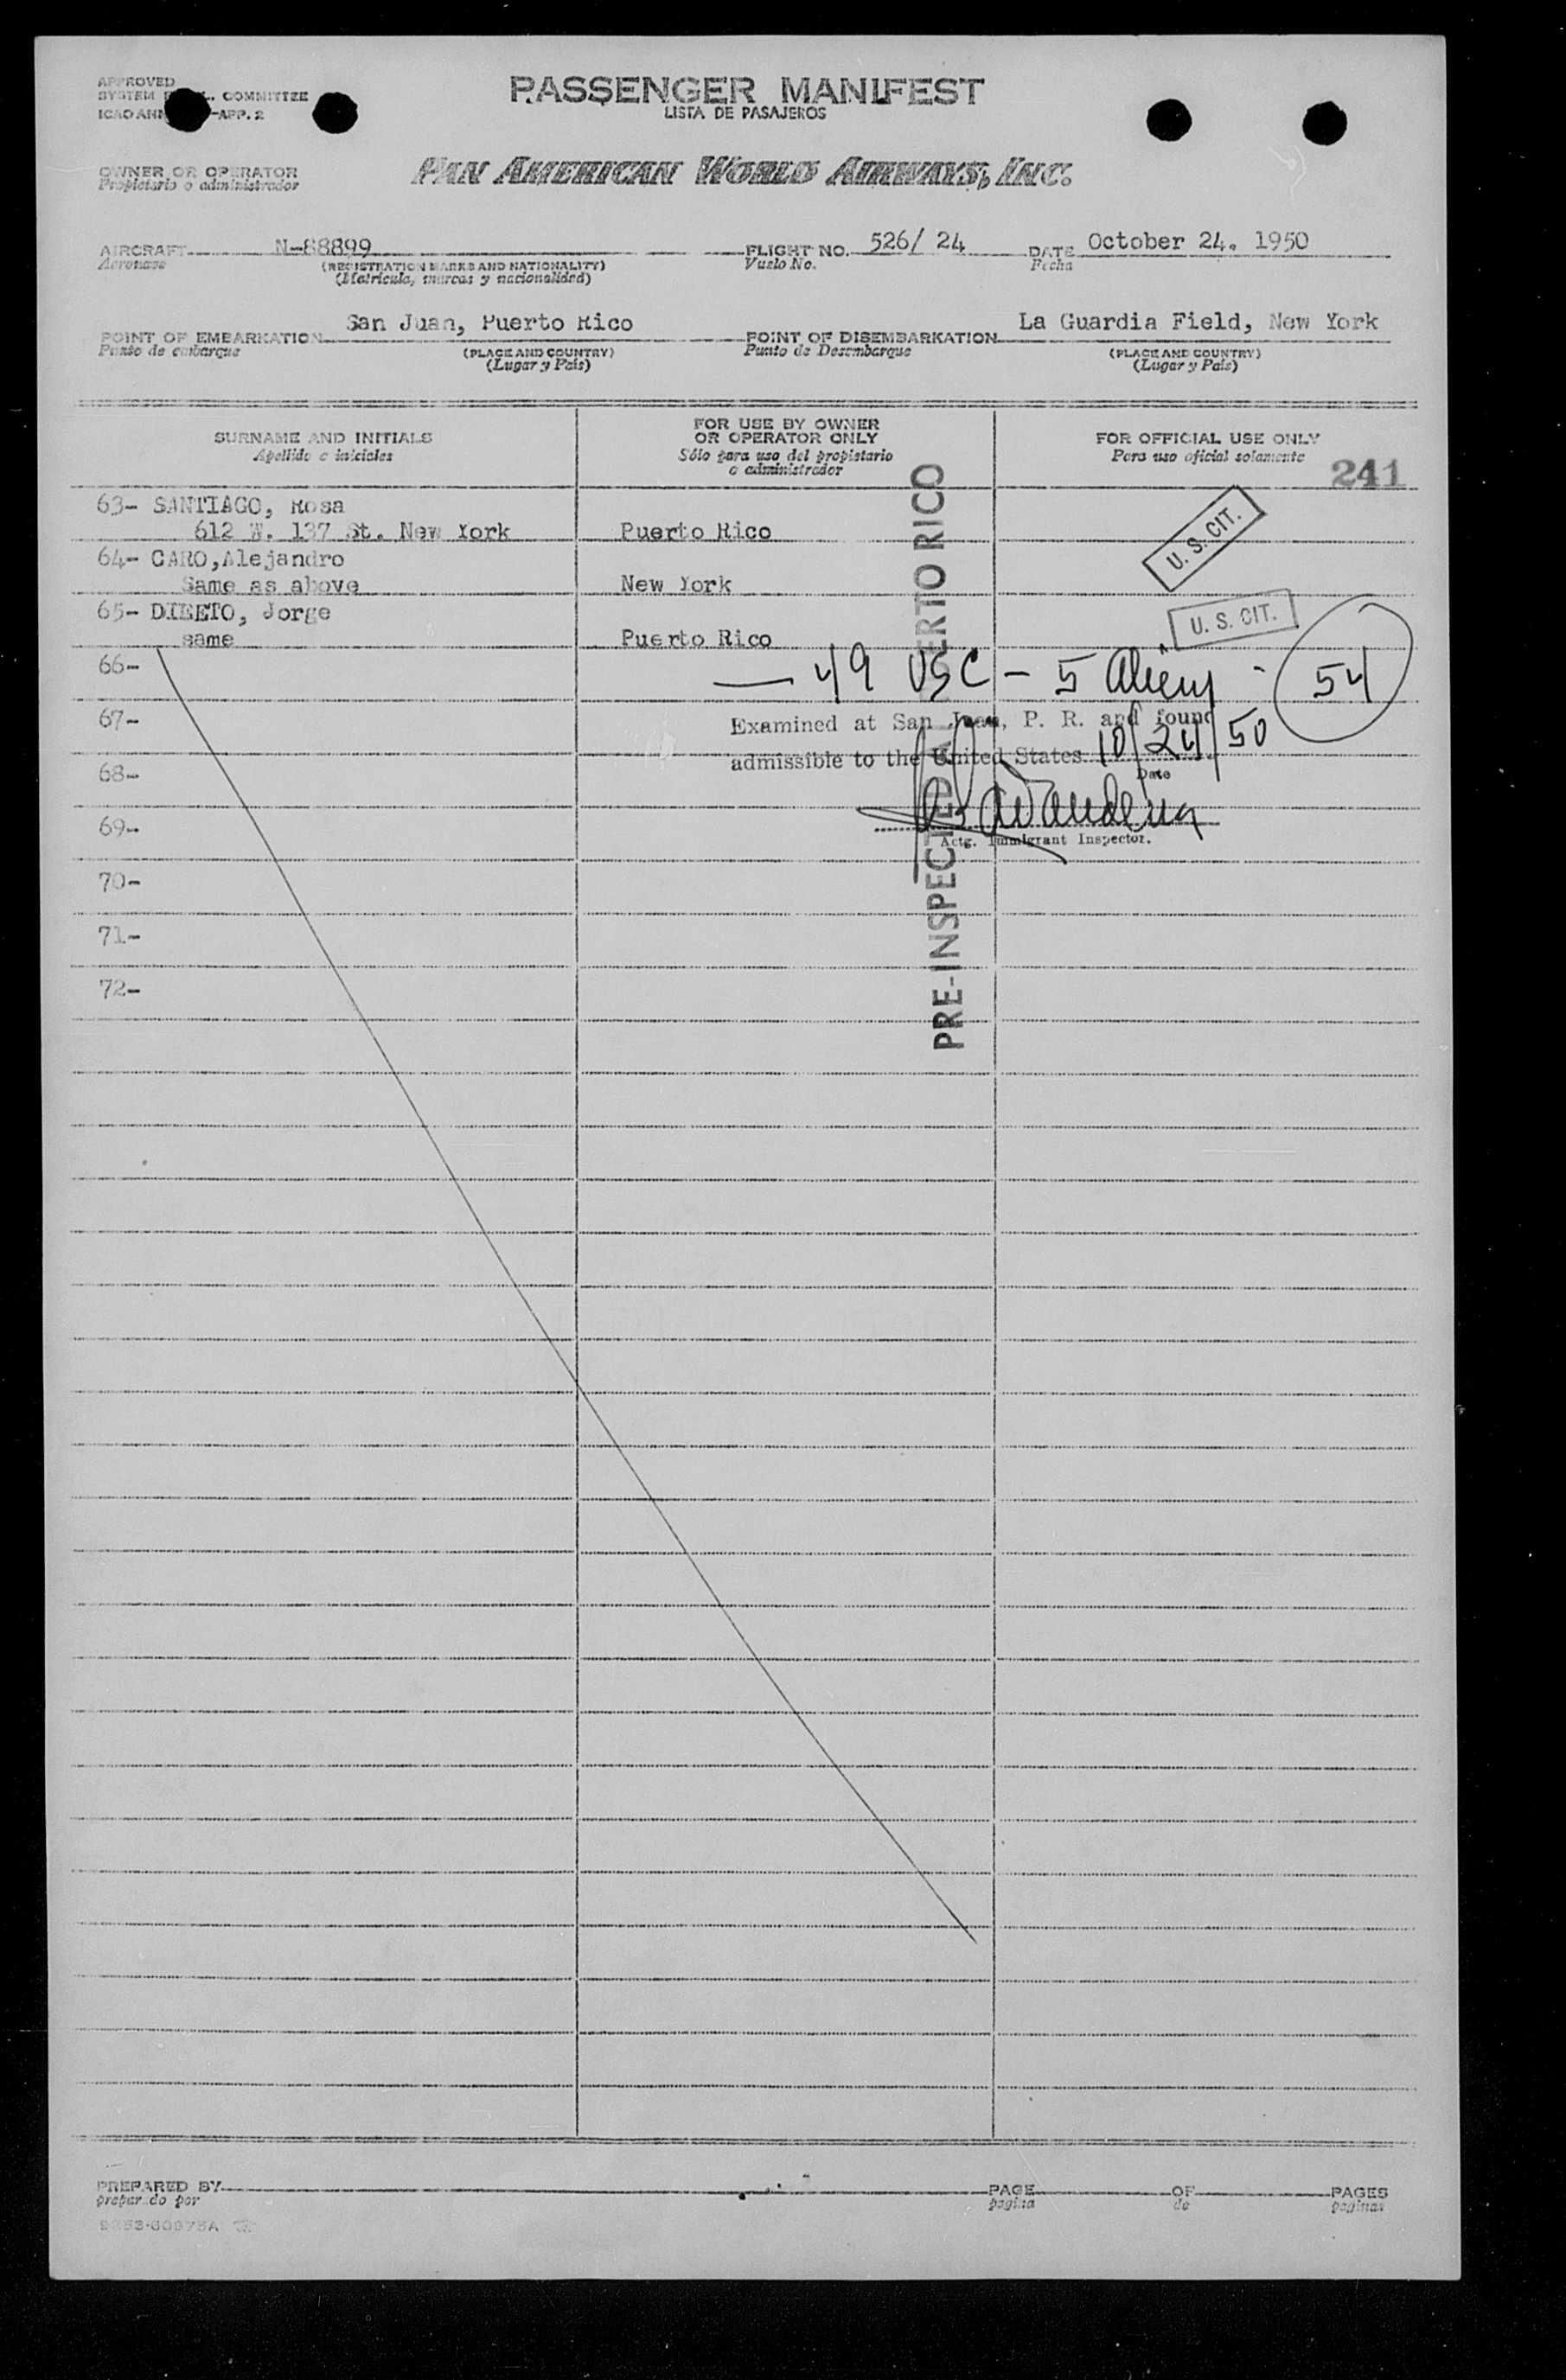 APPROVED
SYSTEM COMMITTEE
ICAO ANN -APP. 2
PASSENGER MANIFEST
LISTA DE PASAJEROS
OWNER OR OPERATOR
Propietario o administrador
PAN AMERICAN WORLD AIRWAYS, INC.
AIRCRAFT N-88899 FLIGHT NO. 526/ 24 DATE October 24. 1950
Aeronave (REGISTRATION MARKS AND NATIONALITY) Vuelo No. Fecha
(Matricula, marcas y nacionalidad)
POINT OF EMBARKATION San Juan, Puerto Rico POINT OF DISEMBARKATION La Guardia Field, New York
Punto de embarque (PLACE AND COUNTRY) Punto de Desembarque (PLACE AND COUNTRY)
(Lugar y País) (Lugar y País)
SURNAME AND INITIALS
Apellido e iniciales
FOR USE BY OWNER
OR OPERATOR ONLY
Sólo para uso del propietario
o administrador
FOR OFFICIAL USE ONLY
Para uso oficial solamente
241
63- SANTIAGO, Rosa
612 W. 137 St. New York Puerto Rico
U. S. CIT.
64- CARO,Alejandro
Same as above New York
65- DIEETO, Jorge
same Puerto Rico
U. S. CIT.
66-
— 49 USC - 5 Aliens - 54
67-
Examined at San Juan, P. R. and found
admissible to the United States 10/24/50
Date
68-
69-
Actg. Immigrant Inspector.
70-
71-
72-
PREPARED BY PAGE OF PAGES
preparado por pagina de paginas